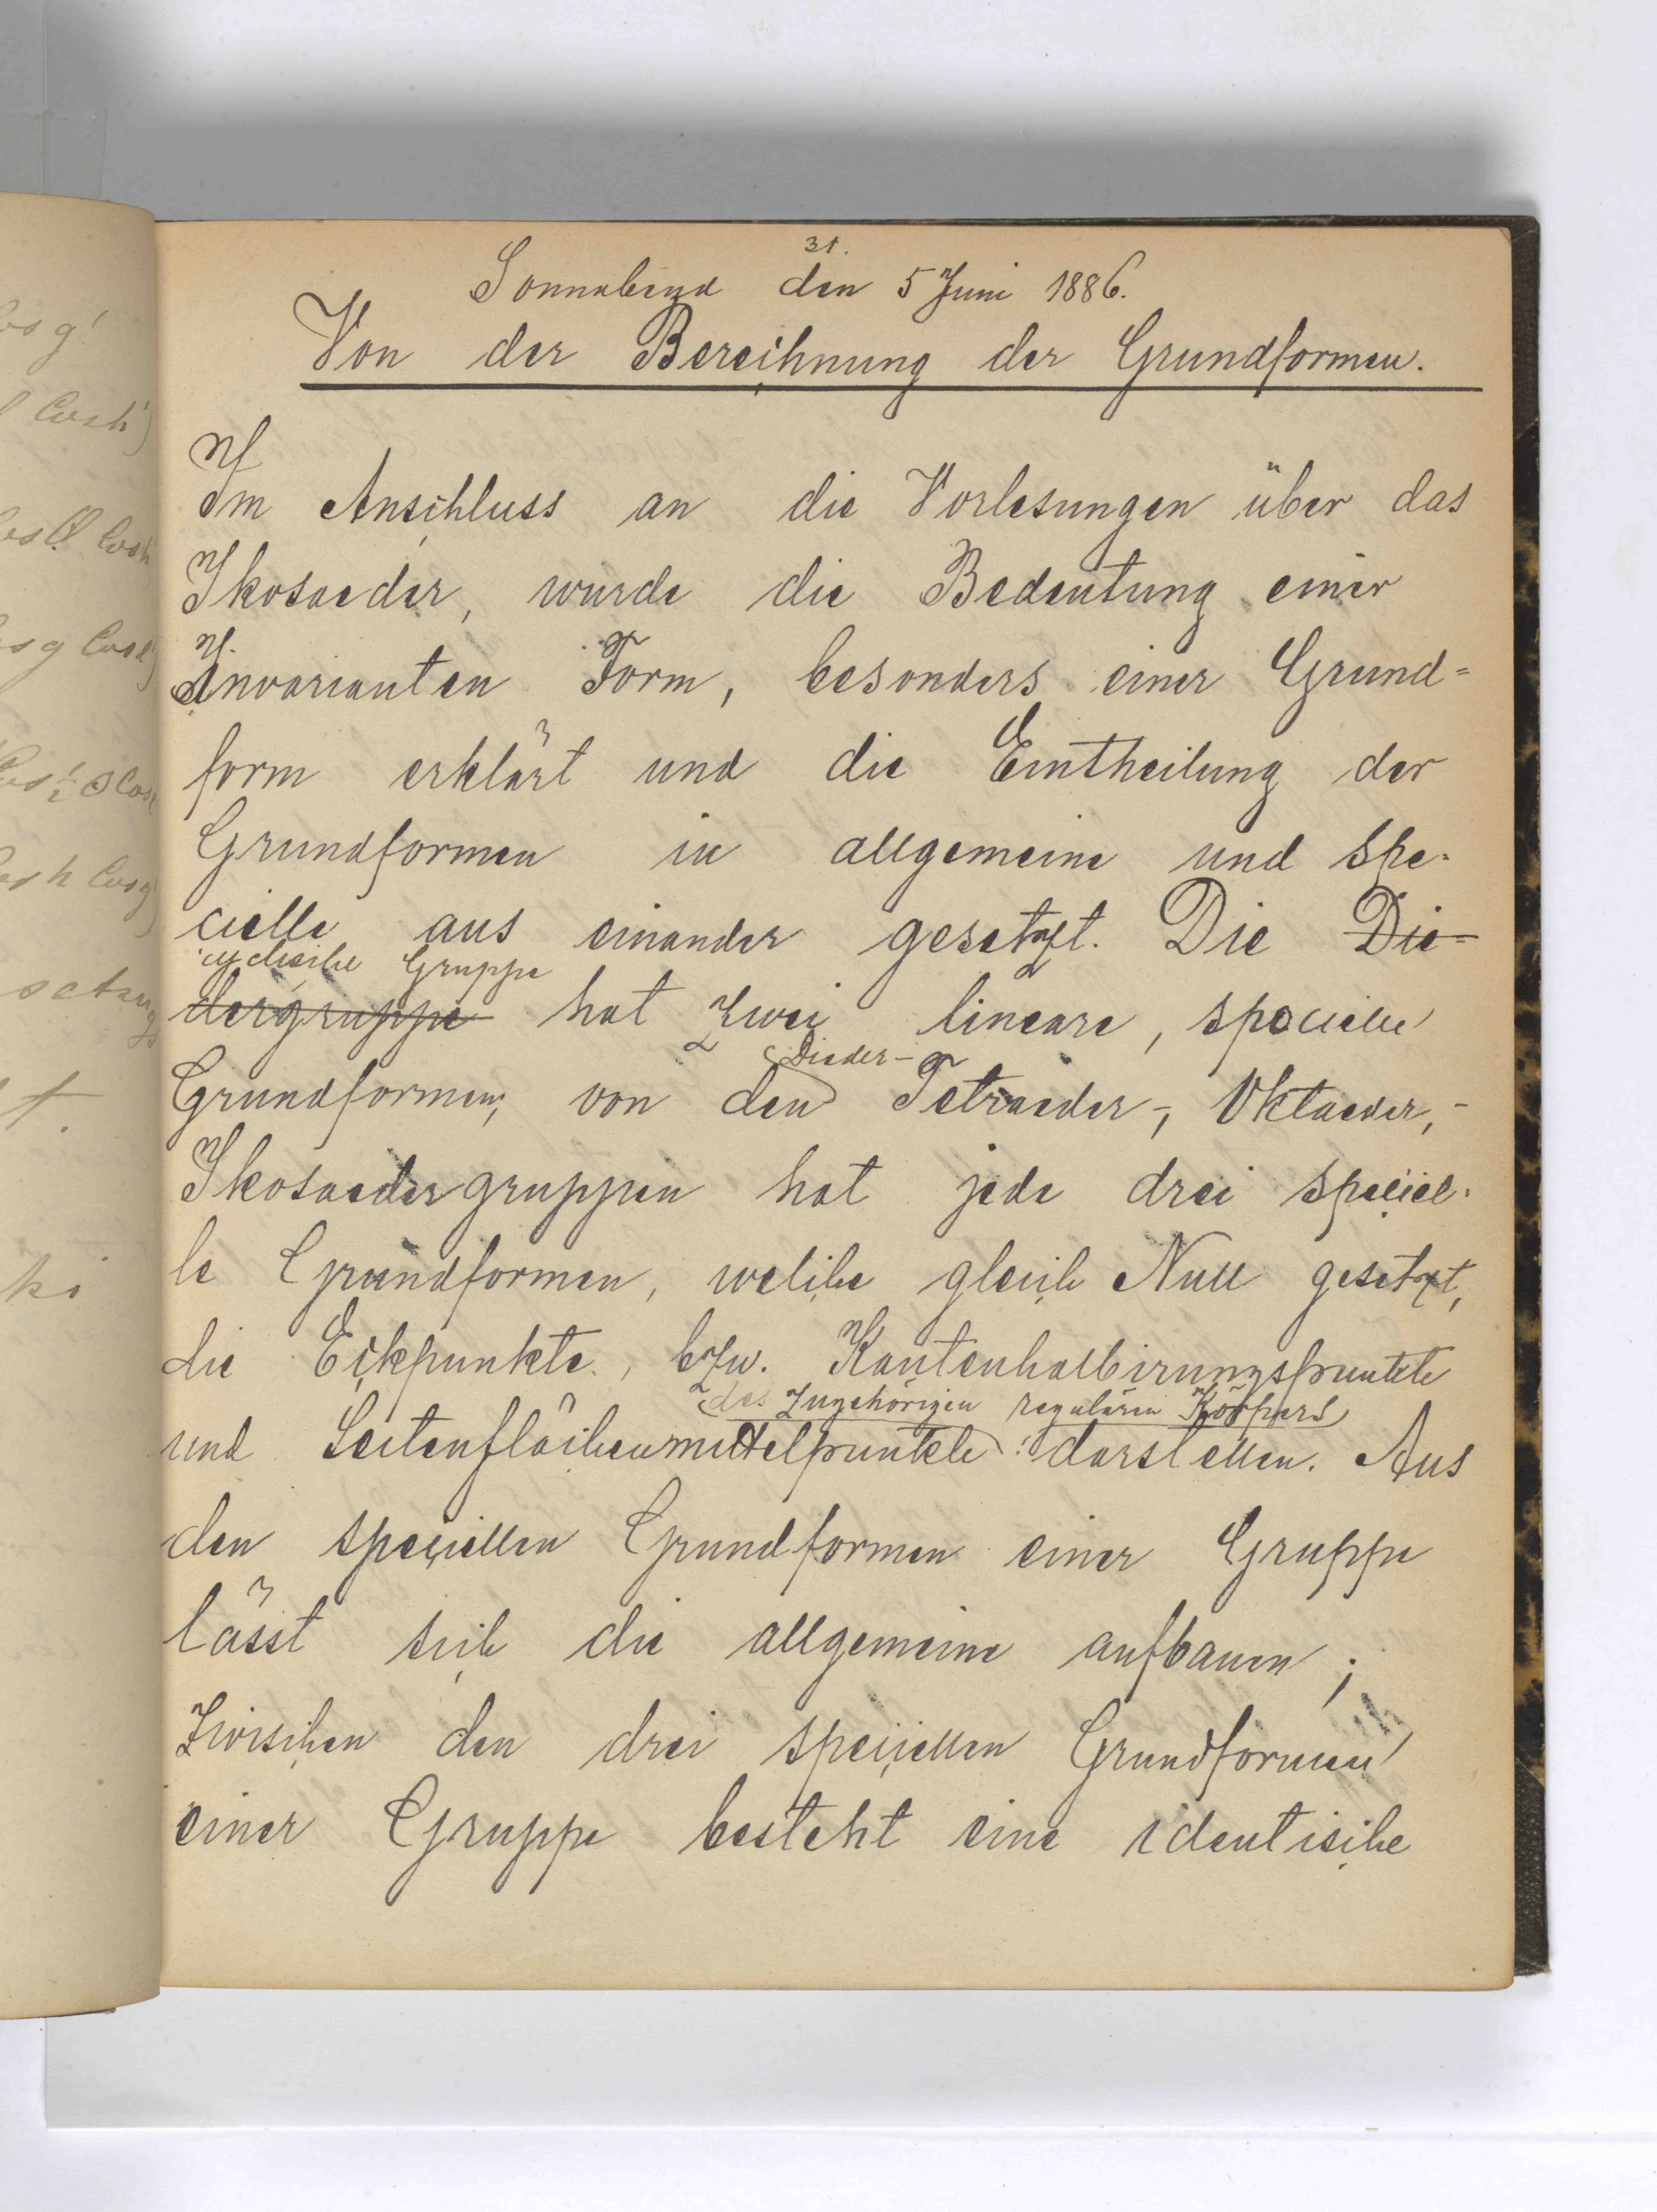 31.
Sonnabend den 5 Juni 1886.
Von der Berechnung der Grundformen.
Im Anschluss an die Vorlesungen über das
Ikosaeder, wurde die Bedeutung einer
Invarianten Form, besonders einer Grund=
form erklärt und die Eintheilung der
Grundformen in allgemeine und spe-
cielle aus einander gesetzt. Die Die=
cyclische Gruppe
dergruppe hat zwei lineare, specielle
Dieder-
Grundformen, von den Tetraeder-, Oktaeder,-
Ikosaedergruppen hat jede drei speciel-
le Grundformen, welche gleich Null gesetzt,
die Eckpunkte, bzw. Kantenhalbirungspunkte
des zugehörigen regulären Körpers
und Seitenflächenmittelpunkte darstellen. Aus
den speciellen Grundformen einer Gruppe
lässt sich die allgemeine aufbauen;
zwischen den drei speciellen Grundformen
einer Gruppe besteht eine identische
cos g'
cos h')
t.